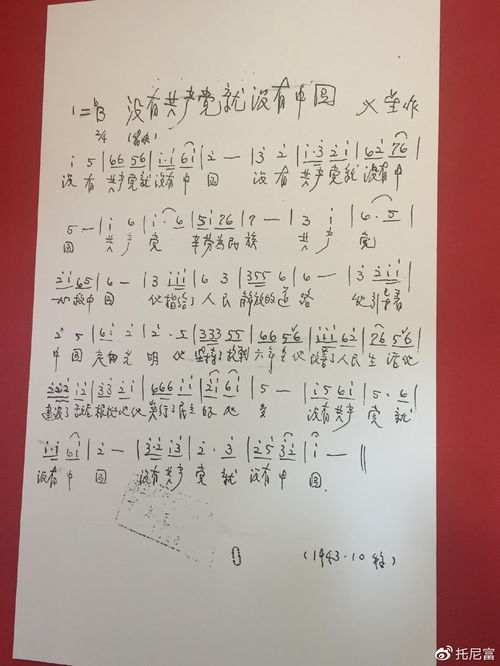 1=ᵇB 没有共产党就没有中国 火星作
2/4
i 5 | 66 56 | i·i 6i | 2 — | 3 2 | i·3 2i | 62 76 |
没有 共产党就没有中国 没有 共产党就没有中
5 — | i 6 | i·6 | 5i 76 | 7 — | 3 i | 6·5 |
国 共产党 辛劳为民族 共产党
2i 65 | 6 — | 3 iii | 6 3 | 355 6 | 6 — | 3 2ii |
一心救中国 他指给了人民 解放的道路 他引导着
2 5 | 6i 2 | 2·5 | 333 55 | 66 56 | iii 62 | 76 56 |
中国走向光明 他坚持了抗战六年多 他改善了人民生活 他
222 i2 | 33 2i | 666 ii | 2i 6i | 5 — | i5 6i | 5·6 |
建设了敌后根据地 他实行了民主的 没有共产党就
i·i 6i | 2 — | 3·2 i3 | 2·3 | 25 32 | i — ‖
没有中国 没有共产党就没有中国
(1943·10
托尼富